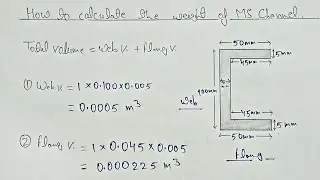 How to calculate the weight of MS Channel.
Total Volume = Web V. + Flang V.
① Web V. = 1 × 0.100 × 0.005
= 0.0005 m³
② Flang V. = 1 × 0.045 × 0.005
= 0.000225 m³
50mm
45mm
5mm
100mm
Web
45mm
5mm
50mm
Flang